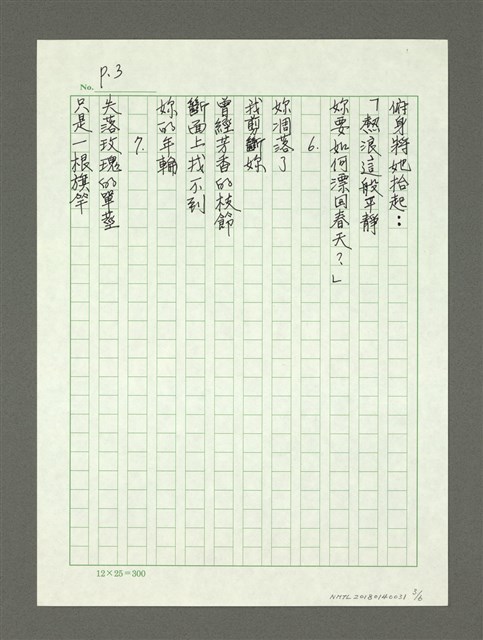 No. p.3
俯身將她抬起：
「熱浪這般平靜
妳要如何漂回春天？」
6.
妳凋落了
我剪斷妳
曾經芳香的枝節
斷面上找不到
妳的年輪
7.
失落玫瑰的單莖
只是一根旗竿
12×25=300
NMTL20180140031 3/6